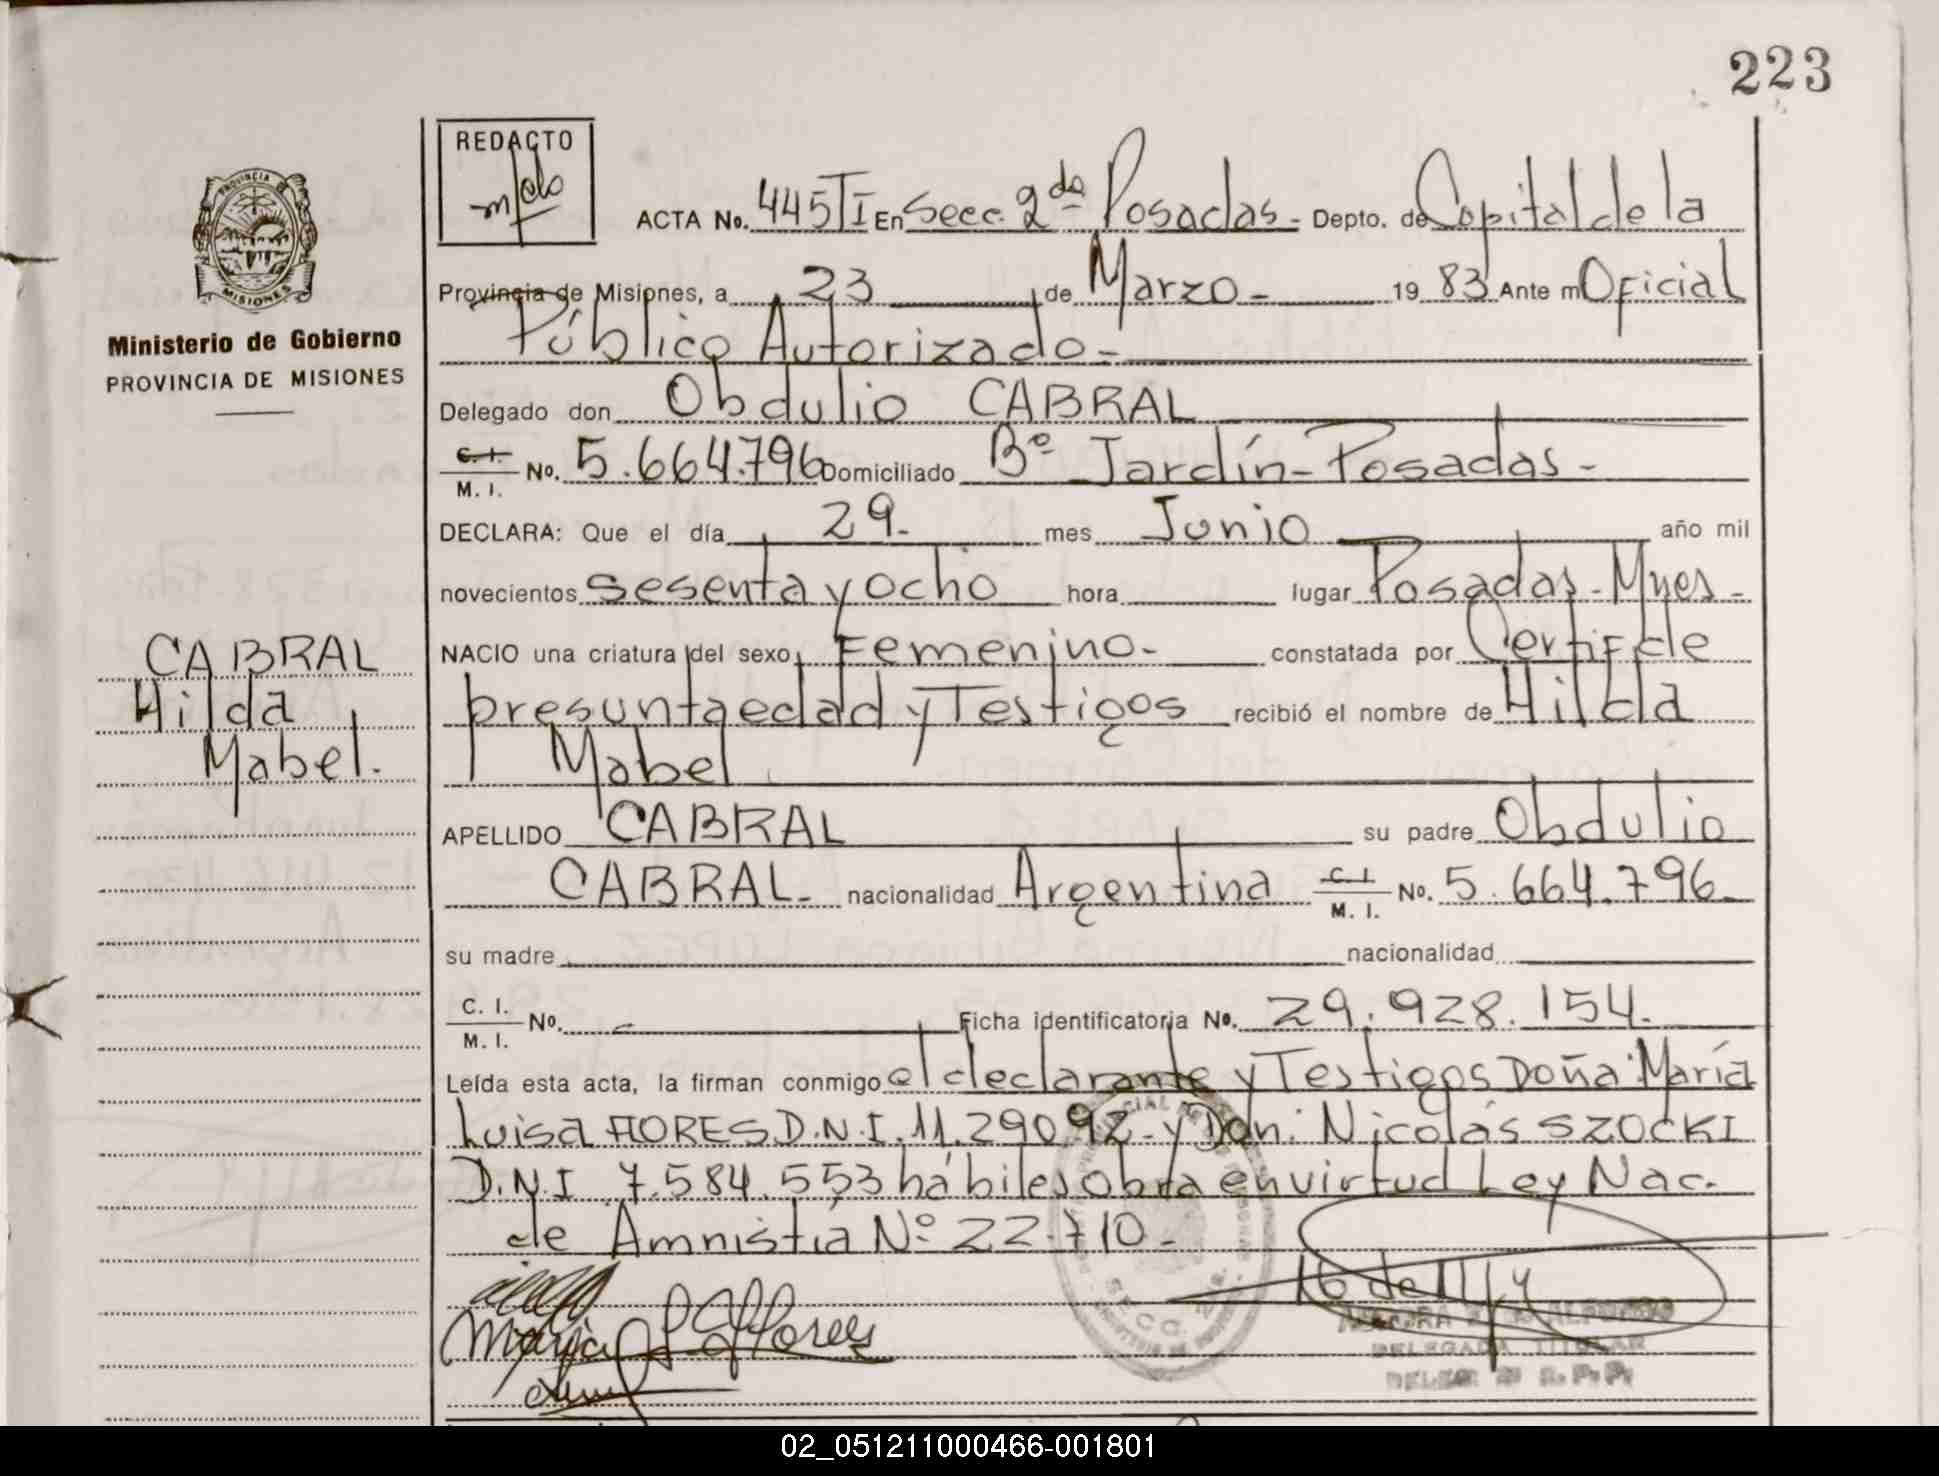 223
REDACTO
PROVINCIA DE
MISIONES
Ministerio de Gobierno
PROVINCIA DE MISIONES
ACTA No. 445 T I En Secc. 2da Posadas - Depto. de Capital de la
Provincia de Misiones, a 23 de Marzo - 19 83 Ante mi Oficial
Público Autorizado -
Delegado don Obdulio CABRAL
C. I. M. I. No. 5.664.796 Domiciliado Bº Jardín - Posadas -
DECLARA: Que el día 29. mes Junio año mil
novecientos sesenta y ocho hora lugar Posadas - Mnes -
NACIO una criatura del sexo Femenino - constatada por Certif de
presunta edad y Testigos recibió el nombre de Hilda
Mabel
APELLIDO CABRAL su padre Obdulio
CABRAL - nacionalidad Argentina C. I. M. I. No. 5.664.796 -
su madre nacionalidad
C. I. M. I. No. - Ficha identificatoria No. 29.928.154.
Leída esta acta, la firman conmigo el declarante y Testigos Doña: María
Luisa FLORES D.N.I. 11.29092 - y Don: Nicolás SZOCKI
D.N.I 7.584.553 hábiles obra en virtud Ley Nac.
de Amnistia Nº 22.710 -
CABRAL
Hilda
Mabel.
María L. Flores
DELEGADA TITULAR
02_051211000466-001801